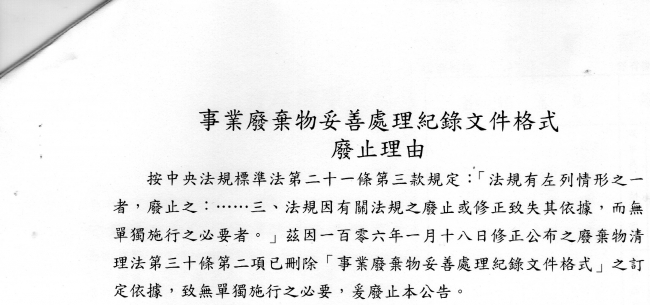 事業廢棄物妥善處理紀錄文件格式
廢止理由
按中央法規標準法第二十一條第三款規定：「法規有左列情形之一
者，廢止之：……三、法規因有關法規之廢止或修正致失其依據，而無
單獨施行之必要者。」茲因一百零六年一月十八日修正公布之廢棄物清
理法第三十條第二項已刪除「事業廢棄物妥善處理紀錄文件格式」之訂
定依據，致無單獨施行之必要，爰廢止本公告。